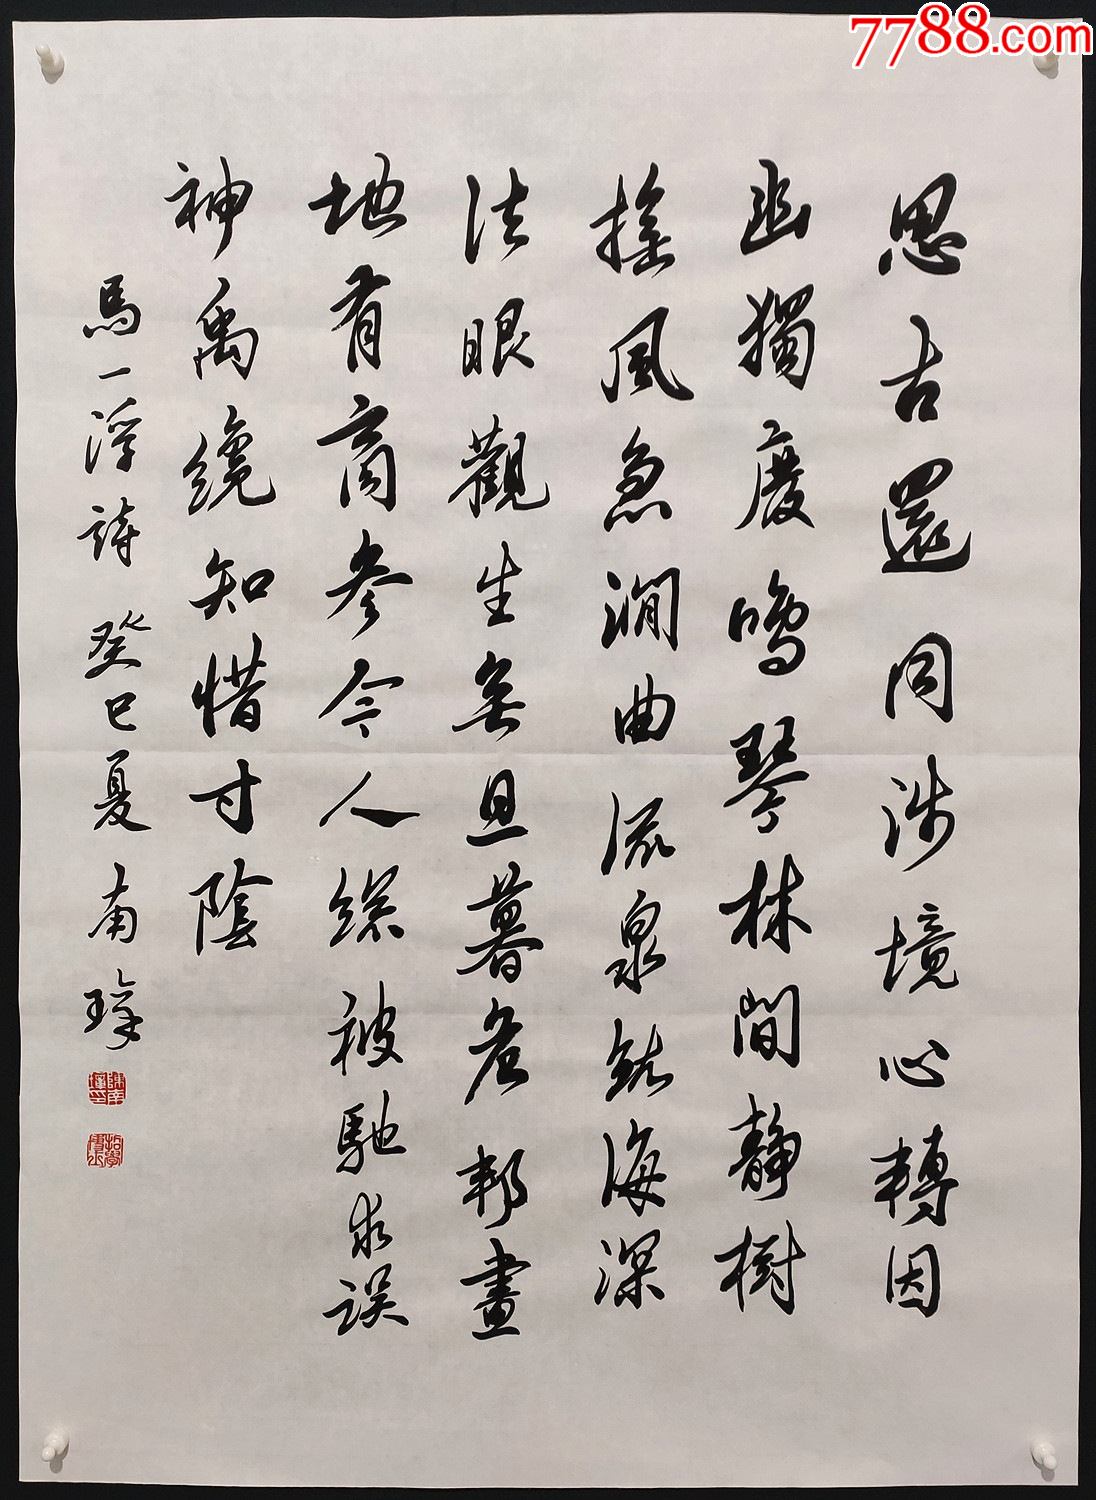 思古還同涉境心轉因
幽獨廢鳴琴林間靜樹
搖風急澗曲流泉就海深
法眼觀生無旦暮危邦畫
地有商參今人總被馳求誤
神禹纔知惜寸陰
馬一浮詩 癸巳夏 南璋
7788.com